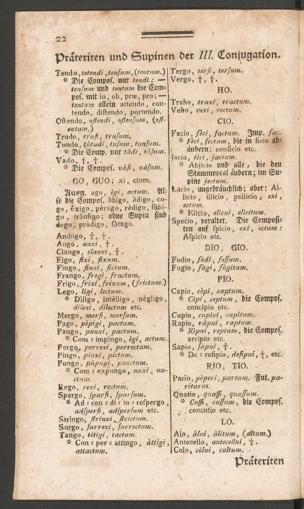 22
Präteriten und Supinen der III. Conjugation.
Tendo, tetendi, tensum, (tentum.)
* Die Compos. nur tendi: —
tensum und tentum die Com-
pos. mit in, ob, prae, pro; —
tentum allein attendo, con-
tendo, distendo, portendo.
Ostendo, ostendi, ostensum, (ost-
entum.)
Trudo, trusi, trusum.
Tundo, tutudi, tusum, tunsum.
* Die Comp. nur tŭdi, tūsum.
Vado, †, †.
* Die Compos. vāsi, vāsum.
GO, GUO: xi, ctum.
Ausg. ago, ēgi, actum. Al-
so die Compos. ăbigo, ădigo, co-
go, exigo, pĕrago, rĕdigo, sŭbi-
go, trănsigo; ohne Supin sind
dego, prōdigo, sătago.
Ambigo, †, †.
Ango, anxi, †.
Clango, clanxi, †.
Figo, fixi, fixum.
Fingo, finxi, fictum.
Frango, fregi, fractum.
Frigo, frixi, frixum, (frictum.)
Lego, lēgi, lectum.
* Diligo, intĕlligo, nĕgligo,
dilexi, dilectum etc.
Mergo, mersi, mersum.
Pago, pĕpigi, pactum.
Pango, panxi, pactum.
* Com: impingo, ēgi, actum.
Pergo, perrexi, perrectum.
Pingo, pinxi, pictum.
Pungo, pŭpugi, punctum.
* Com: expungo, unxi, un-
ctum.
Rego, rexi, rectum.
Spargo, sparsi, sparsum.
* Ad: con: di: in: respergo,
adspersi, adspersum etc.
Stringo, strinxi, strictum.
Surgo, surrexi, surrectum.
Tango, tĕtigi, tactum.
* Con: per: attingo, āttigi,
attactum.
Tergo, tersi, tersum.
Vergo, †, †.
HO.
Traho, traxi, tractum.
Veho, vexi, vectum.
CIO.
Facio, fēci, factum. Imp. fac.
* Fēci, fectum, die in ficio ab-
ändern; conficio etc.
Jacio, jēci, jactum.
* Abjicio und alle, die den
Stammvocal ändern; im Su-
pine jectum.
Lacio, ungebräuchlich; aber: Al-
licio, illicio, pellicio, exi,
ectum.
* Elicio, elicui, elicitum.
Specio, veraltet. Die Composit-
ten auf spicio, exi, ectum:
Aspicio etc.
DIO, GIO.
Fodio, fōdi, fossum.
Fugio, fūgi, fugitum.
PIO.
Capio, cēpi, captum.
* Cēpi, ceptum, die Compos.
concipio etc.
Cupio, cupivi, cupitum.
Rapio, rapui, raptum.
* Ripui, reptum, die Compos.
arripio etc.
Sapio, sapui, †.
* De: resipio, desipui, †, etc.
RIO, TIO.
Pario, pĕperi, partum. Fut. pa-
riturus.
Quatio, quassi, quassum.
* Cussi, cussum, die Compos.
concutio etc.
LO.
Alo, ălui, ălitum, (altum.)
Antecello, antecellui, †.
Colo, cŏlui, cultum.
Präteriten